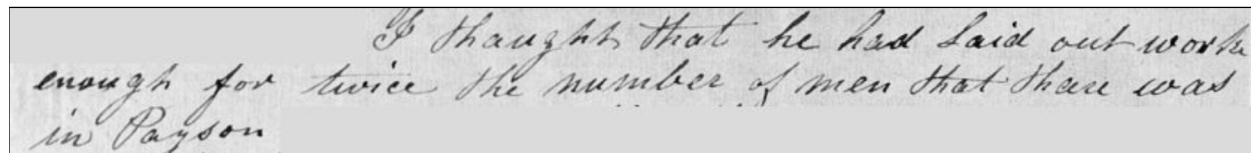 I thaught that he had Laid out worke
enough for twice the number of men that thare was
in Payson